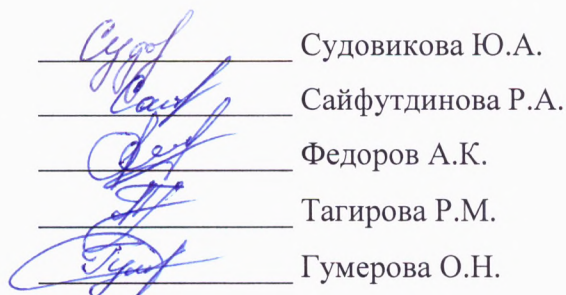 Судовикова Ю.А.
Сайфутдинова Р.А.
Федоров А.К.
Тагирова Р.М.
Гумерова О.Н.